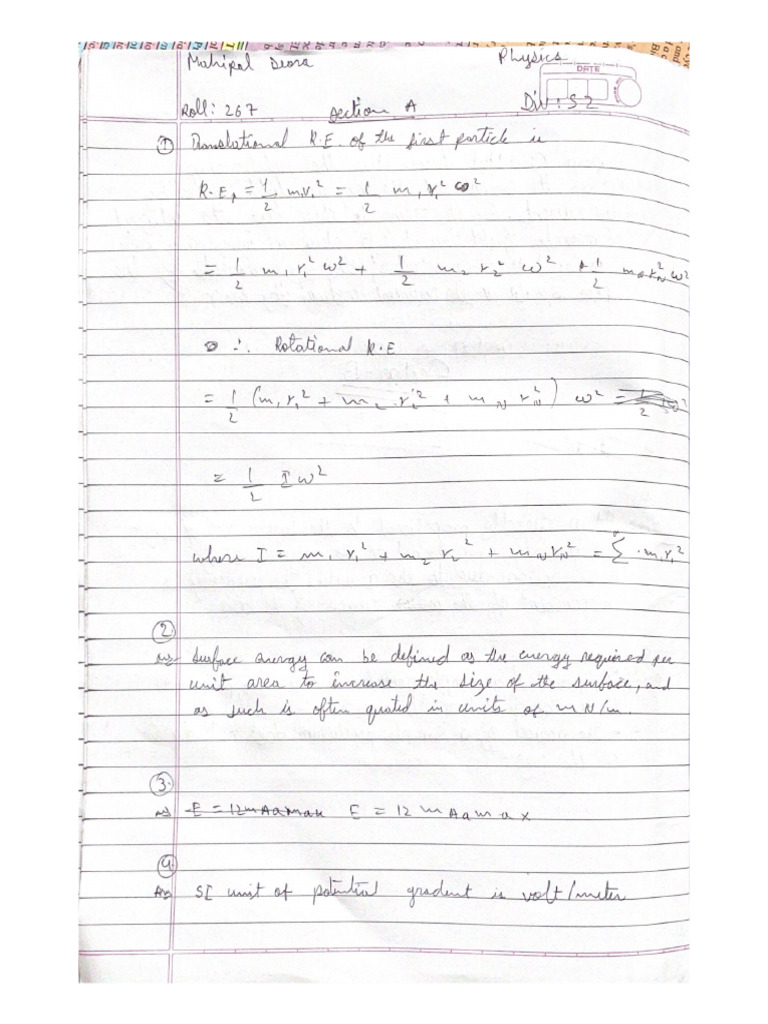 Mahipal Deora Physics
DATE
Roll: 267 Section A Div: S2
① Translational K.E. of the first particle is
K.E₁ = 1/2 m₁v₁² = 1/2 m₁ r₁² ω²
= 1/2 m₁ r₁² ω² + 1/2 m₂ r₂² ω² + 1/2 m r_N² ω²
∴ Rotational K.E
= 1/2 (m₁r₁² + m₂ r₂² + m_N r_N²) ω² =
= 1/2 I ω²
where I = m₁ r₁² + m₂ r₂² + m_N r_N² = Σ m₁r₁²
②
Ans Surface energy can be defined as the energy required per
unit area to increase the size of the surface, and
as such is often quated in units of mN/m.
③
E = 12mAamax E = 12 mAamax
④
Ans SI unit of potential gradient is volt/meter